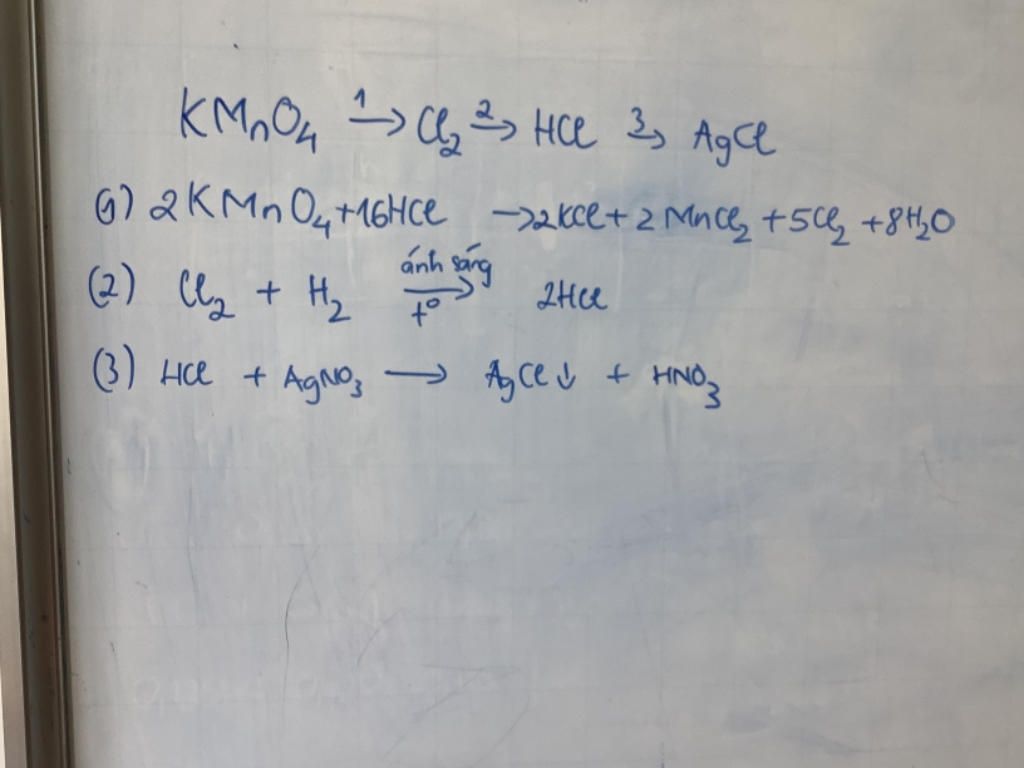 KMnO₄ →¹ Cl₂ →² HCl →³ AgCl
(1) 2KMnO₄ + 16HCl → 2KCl + 2MnCl₂ + 5Cl₂ + 8H₂O
(2) Cl₂ + H₂ ánh sáng → t° 2HCl
(3) HCl + AgNO₃ → AgCl↓ + HNO₃